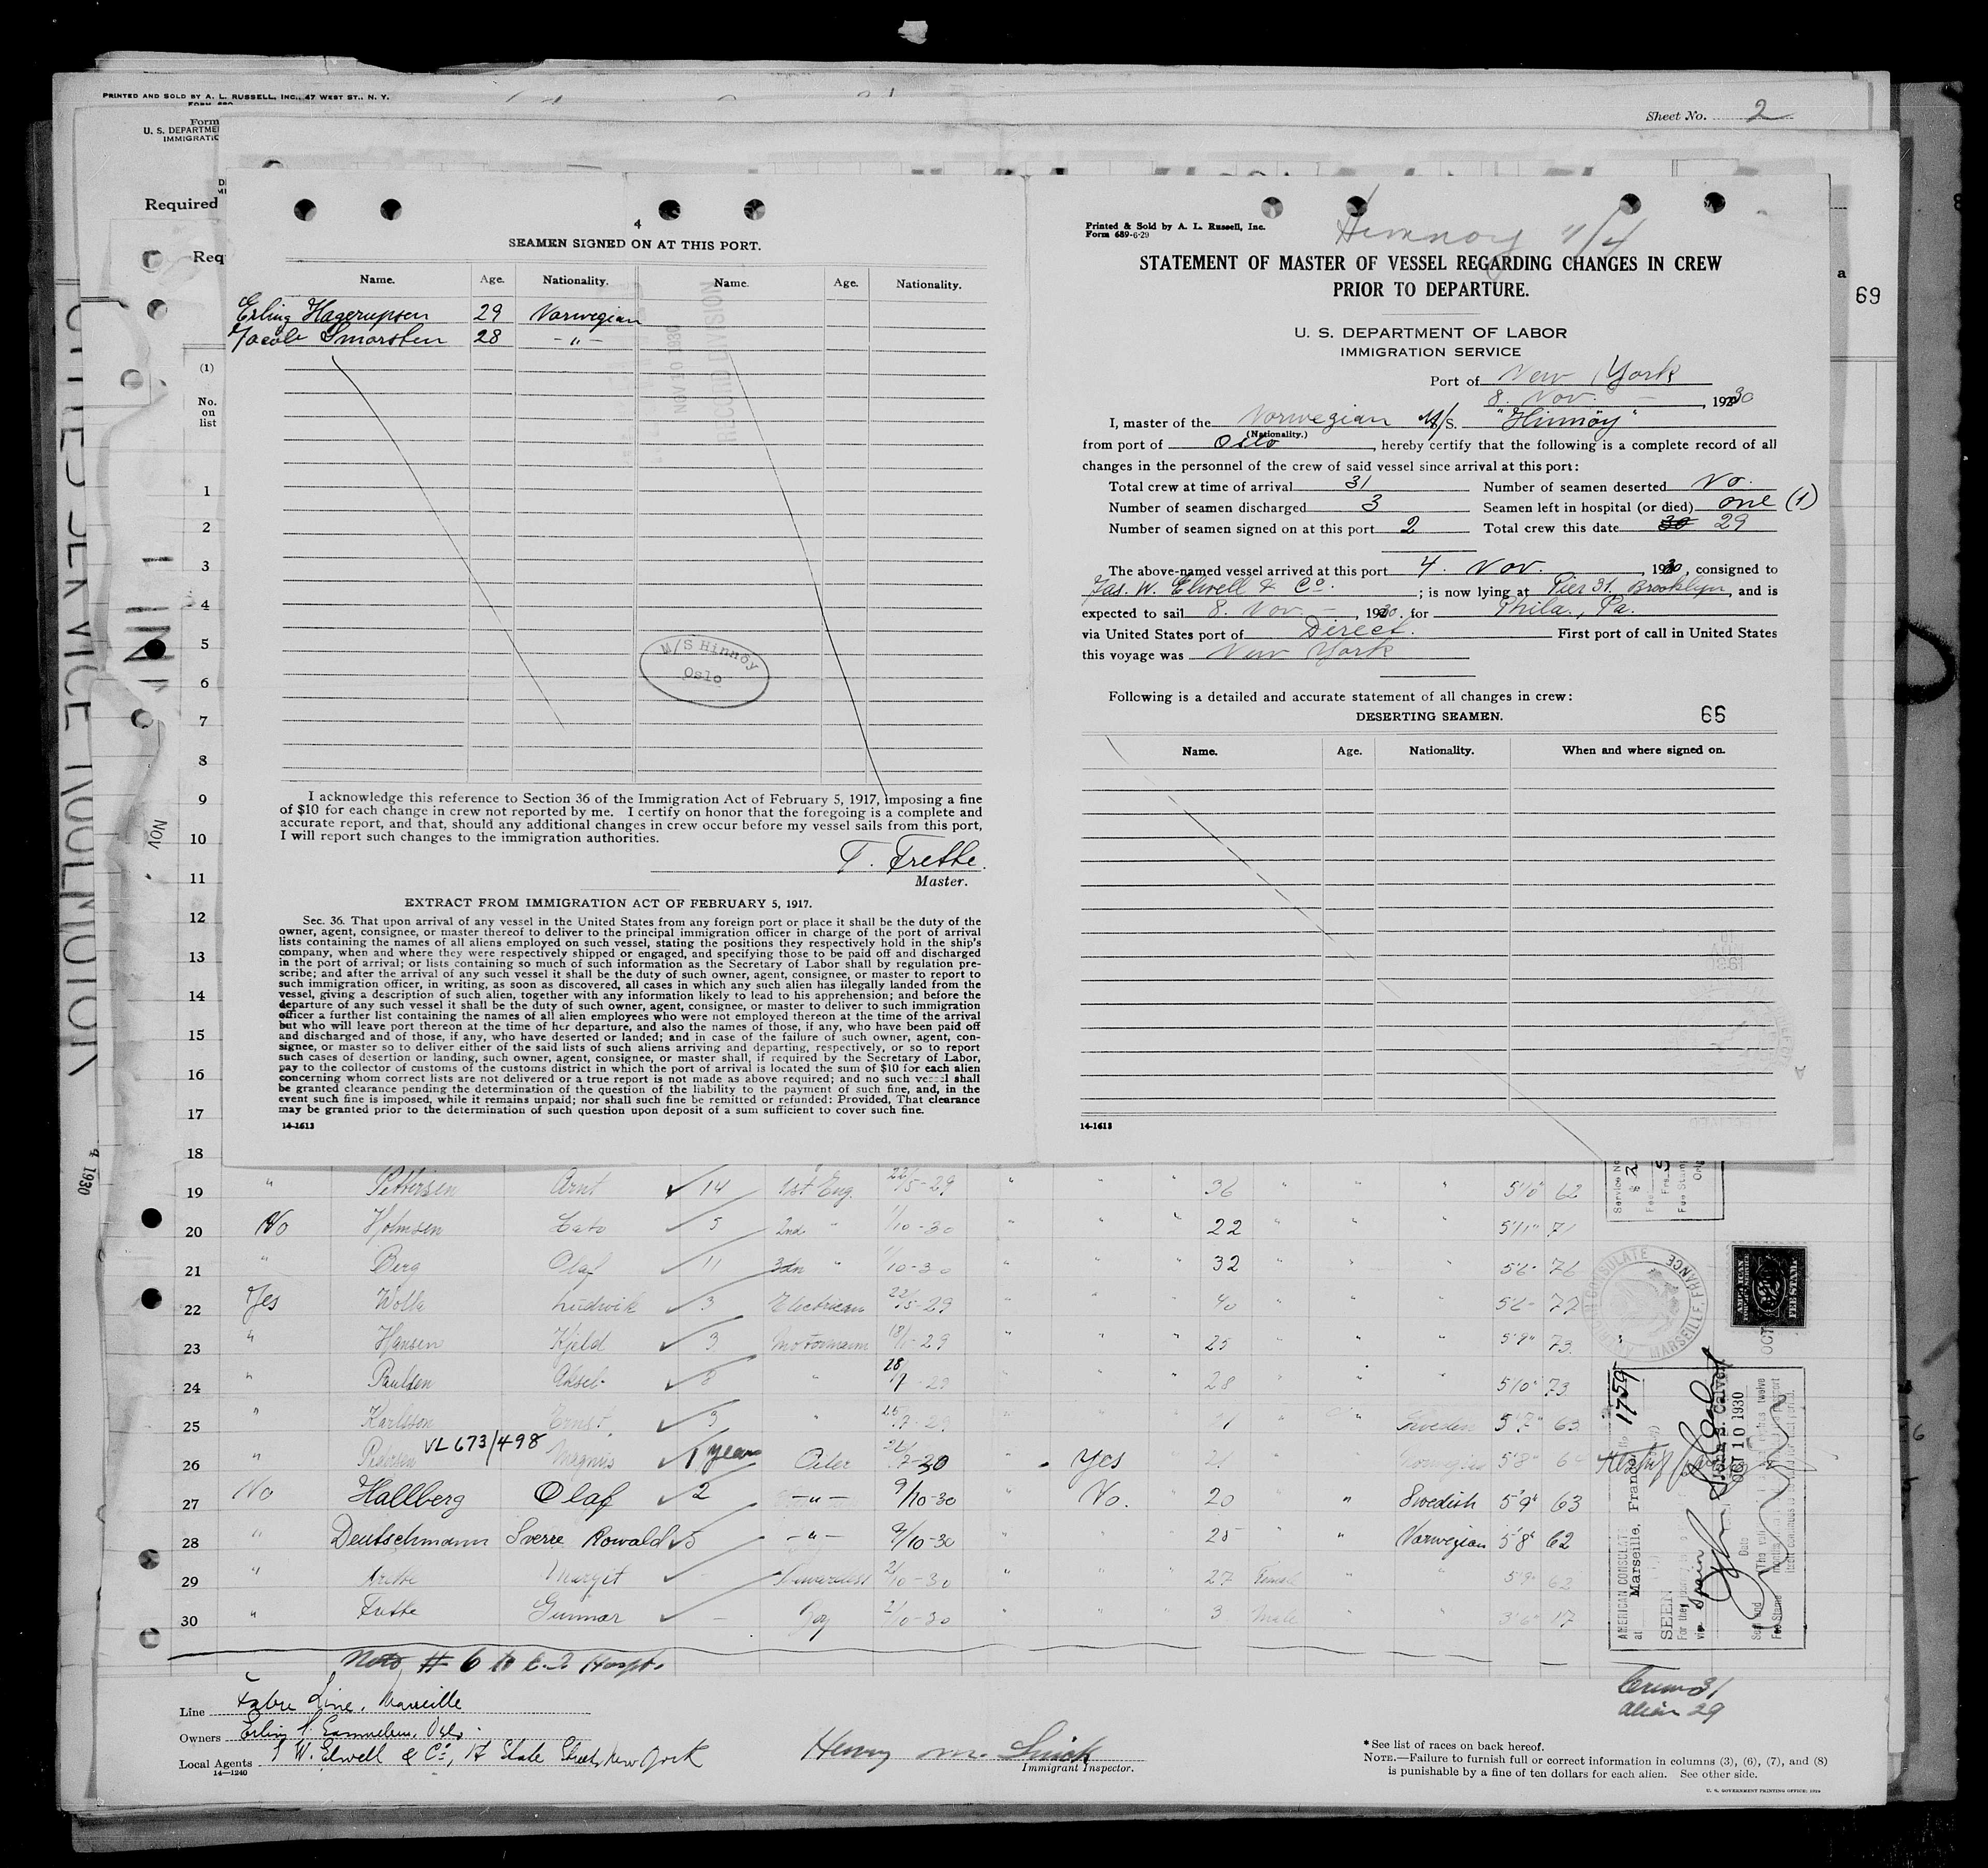 PRINTED AND SOLD BY A. L. RUSSELL, INC., 47 WEST ST., N. Y.
Form
U. S. DEPARTME
IMMIGRATIO
Sheet No. 2
Required
Req
(1)
No.
on
list
4
SEAMEN SIGNED ON AT THIS PORT.
Name. Age. Nationality. Name. Age. Nationality.
Erling Hagerupsen 29 Norwegian
Jacob Smorsten 28 -"-
M/S Hinnöy
Oslo
RECORD DIVISION
NOV 10 1930
I acknowledge this reference to Section 36 of the Immigration Act of February 5, 1917, imposing a fine
of $10 for each change in crew not reported by me. I certify on honor that the foregoing is a complete and
accurate report, and that, should any additional changes in crew occur before my vessel sails from this port,
I will report such changes to the immigration authorities.
T. Frette.
Master.
EXTRACT FROM IMMIGRATION ACT OF FEBRUARY 5, 1917.
Sec. 36. That upon arrival of any vessel in the United States from any foreign port or place it shall be the duty of the
owner, agent, consignee, or master thereof to deliver to the principal immigration officer in charge of the port of arrival
lists containing the names of all aliens employed on such vessel, stating the positions they respectively hold in the ship's
company, when and where they were respectively shipped or engaged, and specifying those to be paid off and discharged
in the port of arrival; or lists containing so much of such information as the Secretary of Labor shall by regulation pre-
scribe; and after the arrival of any such vessel it shall be the duty of such owner, agent, consignee, or master to report to
such immigration officer, in writing, as soon as discovered, all cases in which any such alien has illegally landed from the
vessel, giving a description of such alien, together with any information likely to lead to his apprehension; and before the
departure of any such vessel it shall be the duty of such owner, agent, consignee, or master to deliver to such immigration
officer a further list containing the names of all alien employees who were not employed thereon at the time of the arrival
but who will leave port thereon at the time of her departure, and also the names of those, if any, who have been paid off
and discharged and of those, if any, who have deserted or landed; and in case of the failure of such owner, agent, con-
signee, or master so to deliver either of the said lists of such aliens arriving and departing, respectively, or so to report
such cases of desertion or landing, such owner, agent, consignee, or master shall, if required by the Secretary of Labor,
pay to the collector of customs of the customs district in which the port of arrival is located the sum of $10 for each alien
concerning whom correct lists are not delivered or a true report is not made as above required; and no such vessel shall
be granted clearance pending the determination of the question of the liability to the payment of such fine, and, in the
event such fine is imposed, while it remains unpaid; nor shall such fine be remitted or refunded: Provided, That clearance
may be granted prior to the determination of such question upon deposit of a sum sufficient to cover such fine.
14-1613
Printed & Sold by A. L. Russell, Inc.
Form 689-6-29
Hinnoy 11/4
STATEMENT OF MASTER OF VESSEL REGARDING CHANGES IN CREW
PRIOR TO DEPARTURE.
U. S. DEPARTMENT OF LABOR
IMMIGRATION SERVICE
Port of New York
8. Nov. -, 1930
I, master of the Norwegian M/S. "Hinnöy"
(Nationality.)
from port of Oslo, hereby certify that the following is a complete record of all
changes in the personnel of the crew of said vessel since arrival at this port:
Total crew at time of arrival 31 Number of seamen deserted No.
Number of seamen discharged 3 Seamen left in hospital (or died) one (1)
Number of seamen signed on at this port 2 Total crew this date 30 29
The above-named vessel arrived at this port 4. Nov., 1930, consigned to
Jas. W. Elwell & Co.; is now lying at Pier 31, Brooklyn, and is
expected to sail 8. Nov. -, 1930. for Phila., Pa.
via United States port of Direct. First port of call in United States
this voyage was New York
Following is a detailed and accurate statement of all changes in crew:
DESERTING SEAMEN. 66
Name. Age. Nationality. When and where signed on.
14-1613
a
69
1
2
3
4
5
6
7
8
9
10
11
12
13
14
15
16
17
18
NOV
4 1930
19 " Pettersen Arnt 14 1st Eng. 22/5-29 " " " 36 " " " 5'10" 62
20 No Holmsen Cato 5 2nd " 1/10-30 " " " 22 " " " 5'11" 71
21 " Berg Olaf 11 3dn " 1/10-30 " " " 32 " " " 5'6" 76
22 Yes Wolla Ludvik 3 Electrican 22/5-29 " " " 40 " " " 5'6" 77
23 " Hansen Kjeld 3 Motormann 18/ -29 " " " 25 " " " 5'9" 73
24 " Paulsen Aksel 8 " 18/7-29 " " " 28 " " " 5'10" 73
25 " Karlsson Ernst 3 " 7-29 " " " 21 " " Sweden 5'7" 63
VL 673/498
26 " Pedersen Magnus 1 year Oiler 7-30 Yes " 21 Norwegian 5'8" 64
27 No Hallberg Olaf 2 -"- 9/10-30 " No. " 20 " " Swedish 5'9" 63
28 " Deutschmann Sverre Rowald 5 -"- 9/10-30 " " " 25 " " Norwegian 5'8" 62
29 " Frette Margit - Stewardess 2/10-30 " " " 27 Female " " 5'9" 62
30 " Frette Gunnar - Boy 2/10-30 " " " 3 Male " " 3'6" 17
Service No
Fee
Fee Stamp
AMERICAN CONSULATE MARSEILLE, FRANCE
AMERICAN
FOREIGN SERVICE
FEE STAMP
AMERICAN CONSULATE
at Marseille, France
1759
SEEN
Spain
John S. Calvert
OCT 10 1930
Date
Note # 6 to Hospt.
Crew 31
alien 29
Line Fabre Line, Marseille
Owners Erling Oslo.
Local Agents J. W. Elwell & Co, 17 State Street, New York
14—1240
Henry M.
Immigrant Inspector.
* See list of races on back hereof.
NOTE.—Failure to furnish full or correct information in columns (3), (6), (7), and (8)
is punishable by a fine of ten dollars for each alien. See other side.
U. S. GOVERNMENT PRINTING OFFICE: 1929